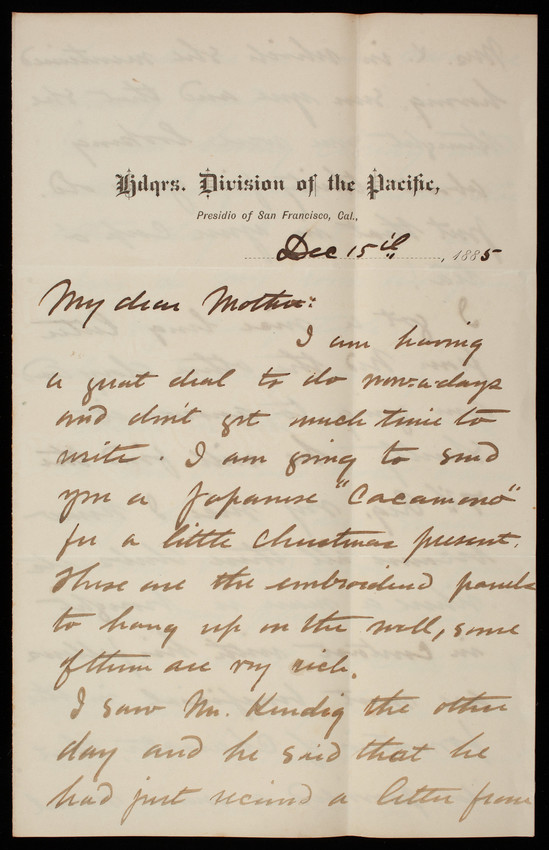 Hdqrs. Division of the Pacific,
Presidio of San Francisco, Cal.,
Dec 15th, 1885
My dear Mother:
I am having
a great deal to do now-a-days
and don't get much time to
write. I am going to send
you a Japanese "Cacamono"
for a little Christmas present.
These are the embroidered panels
to hang up on the wall, some
of them are very rich.
I saw Mr. Kendig the other
day and he said that he
had just received a letter from